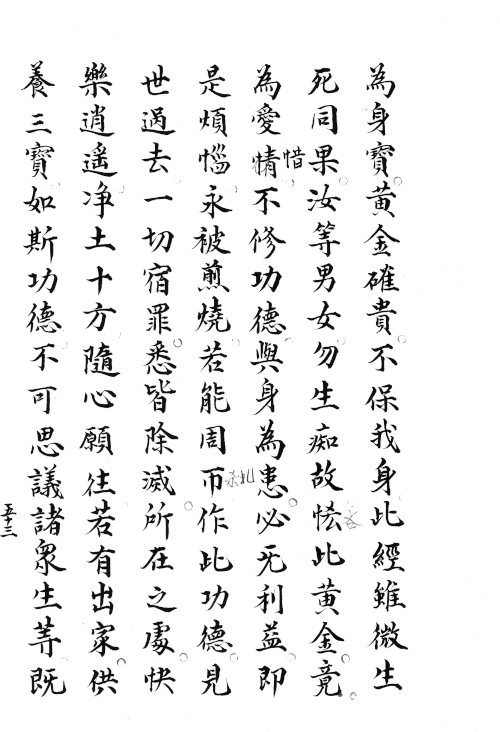 為身寶黃金確貴不保我身此經雖微生
死同果汝等男女勿生痴故恡此黃金竟
為愛情惜不修功德與身為患必无利益即
是煩惱永被煎燒若能周帀作此功德見
世過去一切宿罪悉皆除滅所在之處快
樂逍遥净土十方隨心願往若有出家供
養三寶如斯功德不可思議諸衆生等既
五十三